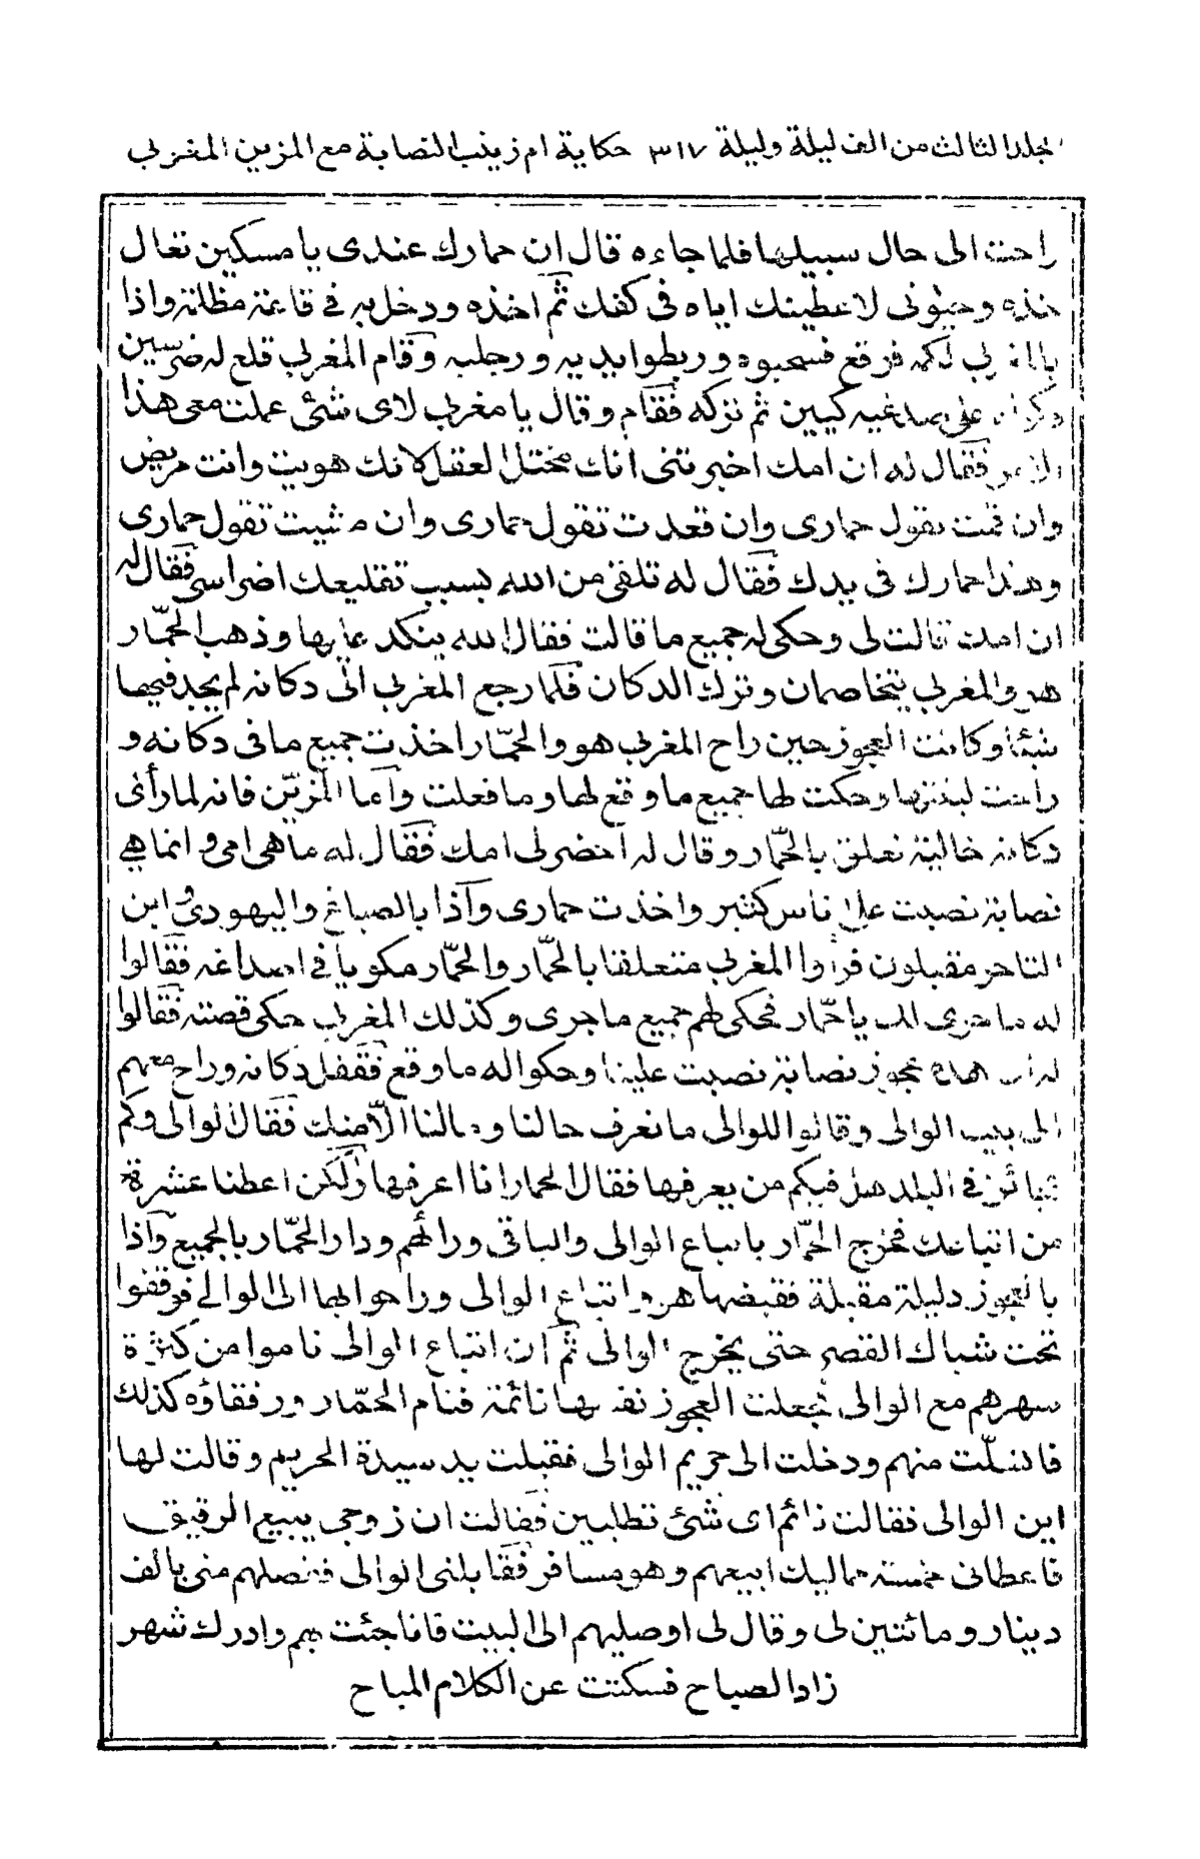 المجلد الثالث من الف ليلة وليلة ٣١٧ حكاية ام زينب النصابة مع المزين المغربى
راحت الى حال سبيلها فلما جاءه قال ان حمارك عندى يا مسكين تعال
خذه وحيٰونى لاعطينك اياه فى كفك ثم اخذه ودخل به فى قاعة مظلمة واذا
بالمغربى لكمه فوقع فسحبوه وربطوا يديه ورجليه وقام المغربى قلع له ضرسين
وكواه على صدغيه كيين ثم تركه فقام وقال يا مغربى لاى شئ عملت معى هذا
الامر فقال له ان امك اخبرتنى انك مختل العقل لانك هويت وانت مريض
وان قمت تقول حمارى وان قعدت تقول حمارى وان مشيت تقول حمارى
وهذا حمارك فى يدك فقال له تلقى من الله بسبب تقليعك اضراسى فقال له
ان امك قالت لى وحكى له جميع ما قالت فقال الله ينكد عليها وذهب الحمّار
هو والمغربى يتخاصمان وترك الدكان فلما رجع المغربى الى دكانه لم يجد فيها
شيئا وكانت العجوز حين راح المغربى هو والحمّار اخذت جميع ما فى دكانه و
راحت لبنتها وحكت لها جميع ما وقع لها وما فعلت وأما المزيّن فانه لما رأى
دكانه خالية تعلق بالحمّار وقال له احضر لى امك فقال له ما هى امى وانما هي
نصابة نصبت على ناس كثير واخذت حمارى واذا بالصباغ واليهودى وابن
التاجر مقبلون فرأوا المغربى متعلقا بالحمّار والحمّار مكويا في اصداغه فقالوا
له ما جرى لك يا حمّار فحكى لهم جميع ما جرى وكذلك المغربى حكى قصته فقالوا
له ان هذه عجوز نصابة نصبت علينا وحكوا له ما وقع فقفل دكانه وراح معهم
الى بيت الوالى وقالوا للوالى ما نعرف حالنا ومالنا الّا منك فقال الوالى وكم
عجائز في البلد هل فيكم من يعرفها فقال الحمار انا اعرفها ولكن اعطنا عشرة
من اتباعك فخرج الحمّار باتباع الوالى والباقى ورائهم ودار الحمّار بالجميع واذا
بالعجوز دليلة مقبلة فقبضها هو واتباع الوالى وراحوا بها الى الوالي فوقفوا
تحت شباك القصر حتى يخرج الوالى ثم ان اتباع الوالى ناموا من كثرة
سهرهم مع الوالى فجعلت العجوز نفسها نائمة فنام الحمّار ورفقاؤه كذلك
فانسلّت منهم ودخلت الى حريم الوالى فقبلت يد سيدة الحريم وقالت لها
اين الوالى فقالت نائم اى شئ تطلبين فقالت ان زوجى يبيع الرقيق
فاعطانى خمسة مماليك ابيعهم وهو مسافر فقابلنى الوالى ففصلهم منى بالف
دينار ومائتين لى وقال لى اوصليهم الى البيت فانا جئت بهم وادرك شهر
زاد الصباح فسكتت عن الكلام المباح